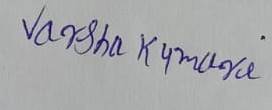 Varsha Kymari